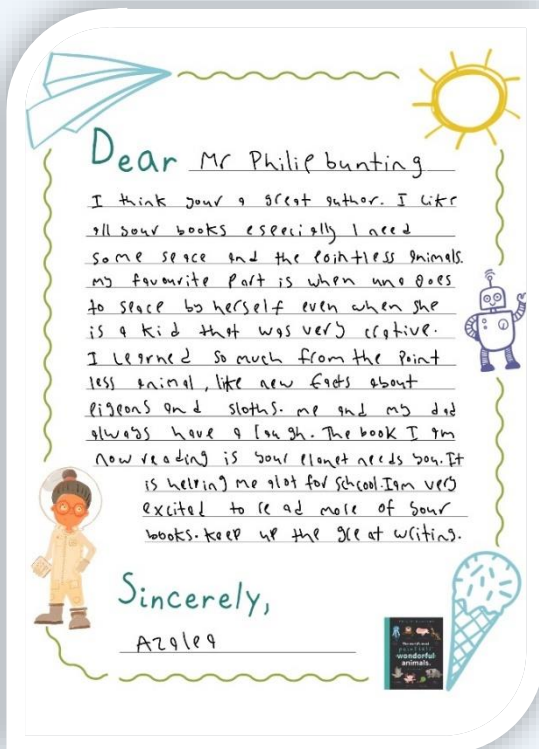 Dear Mr Philip bunting
I think your a great author. I like
all your books especially I need
some space and the pointless animals.
my favourite Part is when una goes
to space by herself even when she
is a kid that was very crative.
I learned so much from the Point
less animal, like new facts about
pigeons and sloths. me and my dad
always have a laugh. The book I am
now reading is your planet needs you. It
is helping me alot for School. I am very
excited to read more of your
books. keep up the great writing.
Sincerely,
Azalea
wonderful
animals.